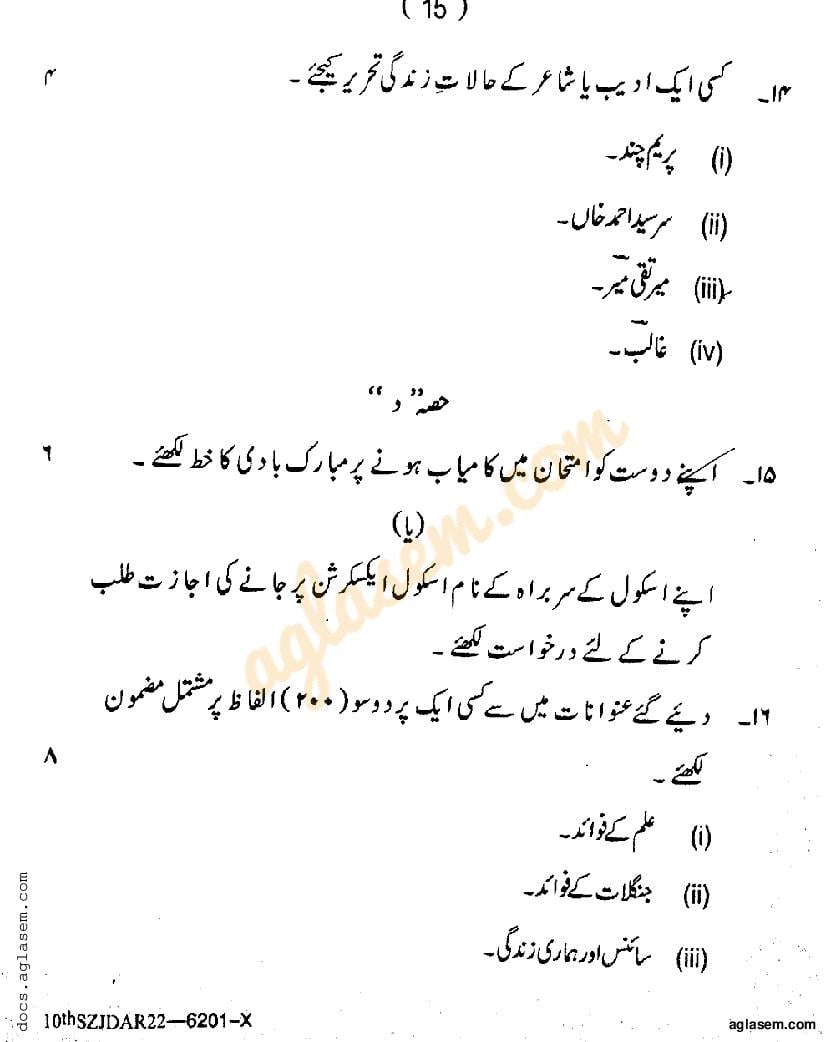 ( 15 )
۱۴۔ کسی ایک ادیب یا شاعر کے حالاتِ زندگی تحریر کیجئے ۔ ۴
(i) پریم چند ۔
(ii) سرسید احمد خاں ۔
(iii) میر تقی میرؔ ۔
(iv) غالبؔ ۔
حصہ ”د“
۱۵۔ اپنے دوست کو امتحان میں کامیاب ہونے پر مبارک بادی کا خط لکھئے ۔ ٦
(یا)
اپنے اسکول کے سربراہ کے نام اسکول ایکسکرشن پر جانے کی اجازت طلب
کرنے کے لئے درخواست لکھئے ۔
۱٦۔ دیئے گئے عنوانات میں سے کسی ایک پر دو سو (۲۰۰) الفاظ پر مشتمل مضمون
لکھئے ۔ ۸
(i) علم کے فوائد ۔
(ii) جنگلات کے فوائد ۔
(iii) سائنس اور ہماری زندگی ۔
10thSZJDAR22—6201-X
aglasem.com
docs.aglasem.com
aglasem.com